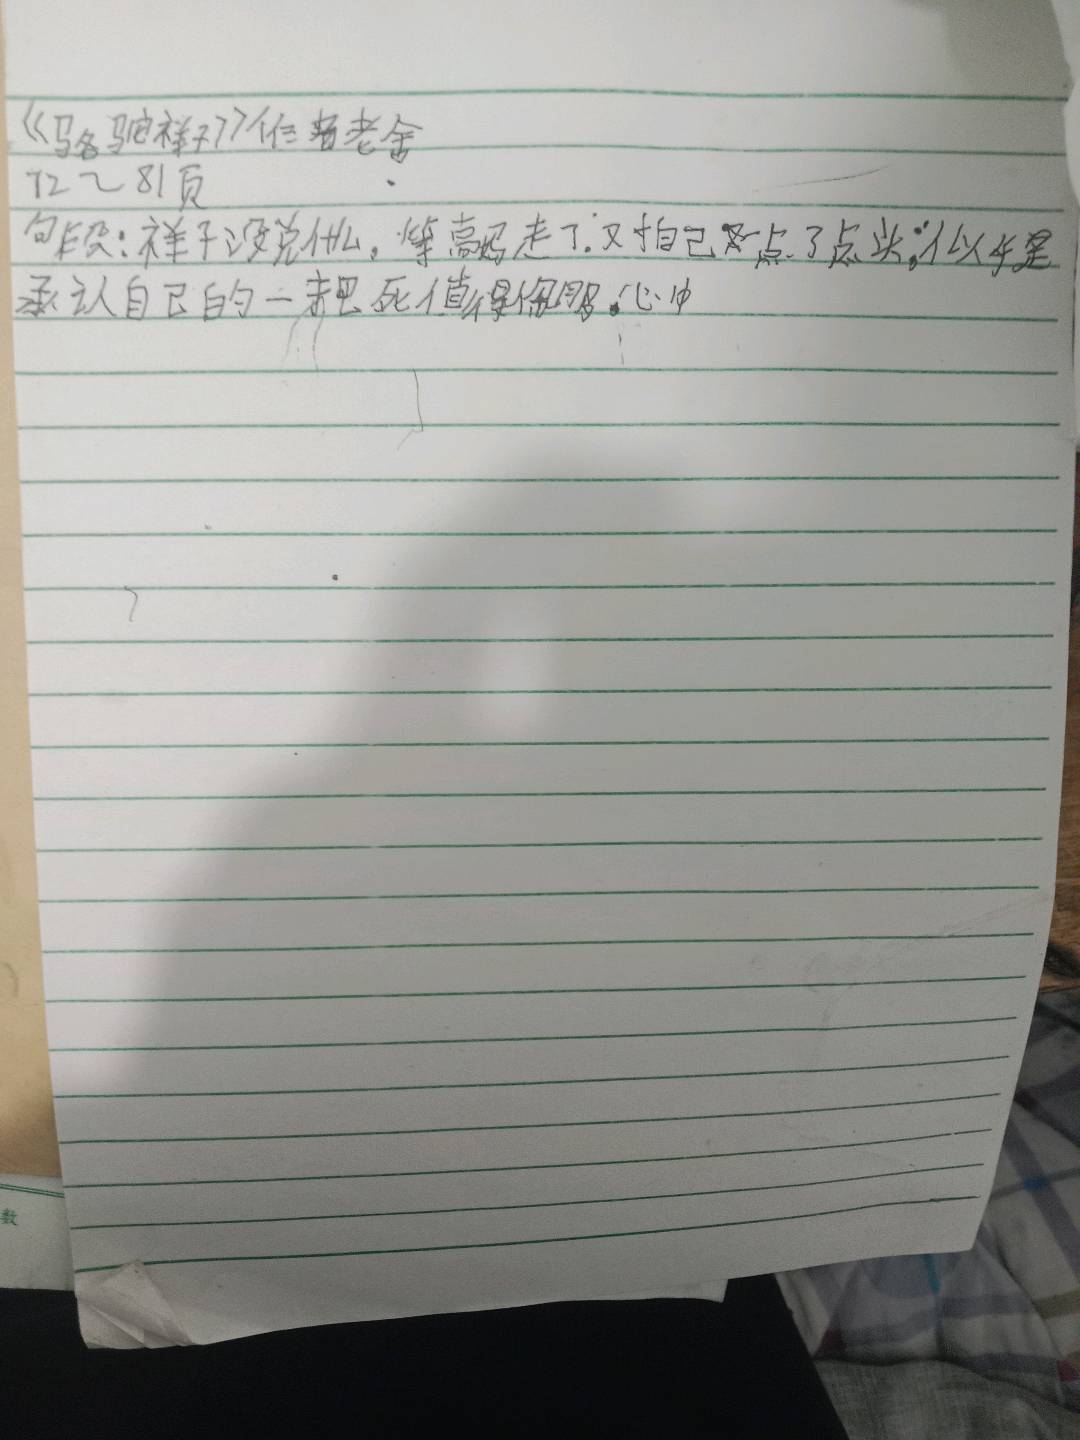 《骆驼祥子》作者老舍
72～81页
句段：祥子没说什么，等高妈走了.又怕自己点了点头。似乎是
承认自己的一把死值得佩服.心中
数